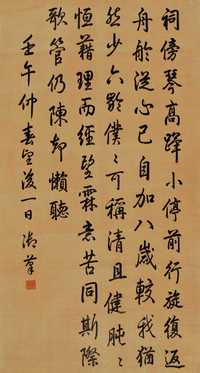 祠傍琴高蹕小停前行旋復返
舟舲從心已自加八歲較我猶
然少六齡僕〻可稱清且健肫〻
恒藉理而經望霖意苦同斯際
歌管仍陳却懶聽
壬午仲春望後一日御筆